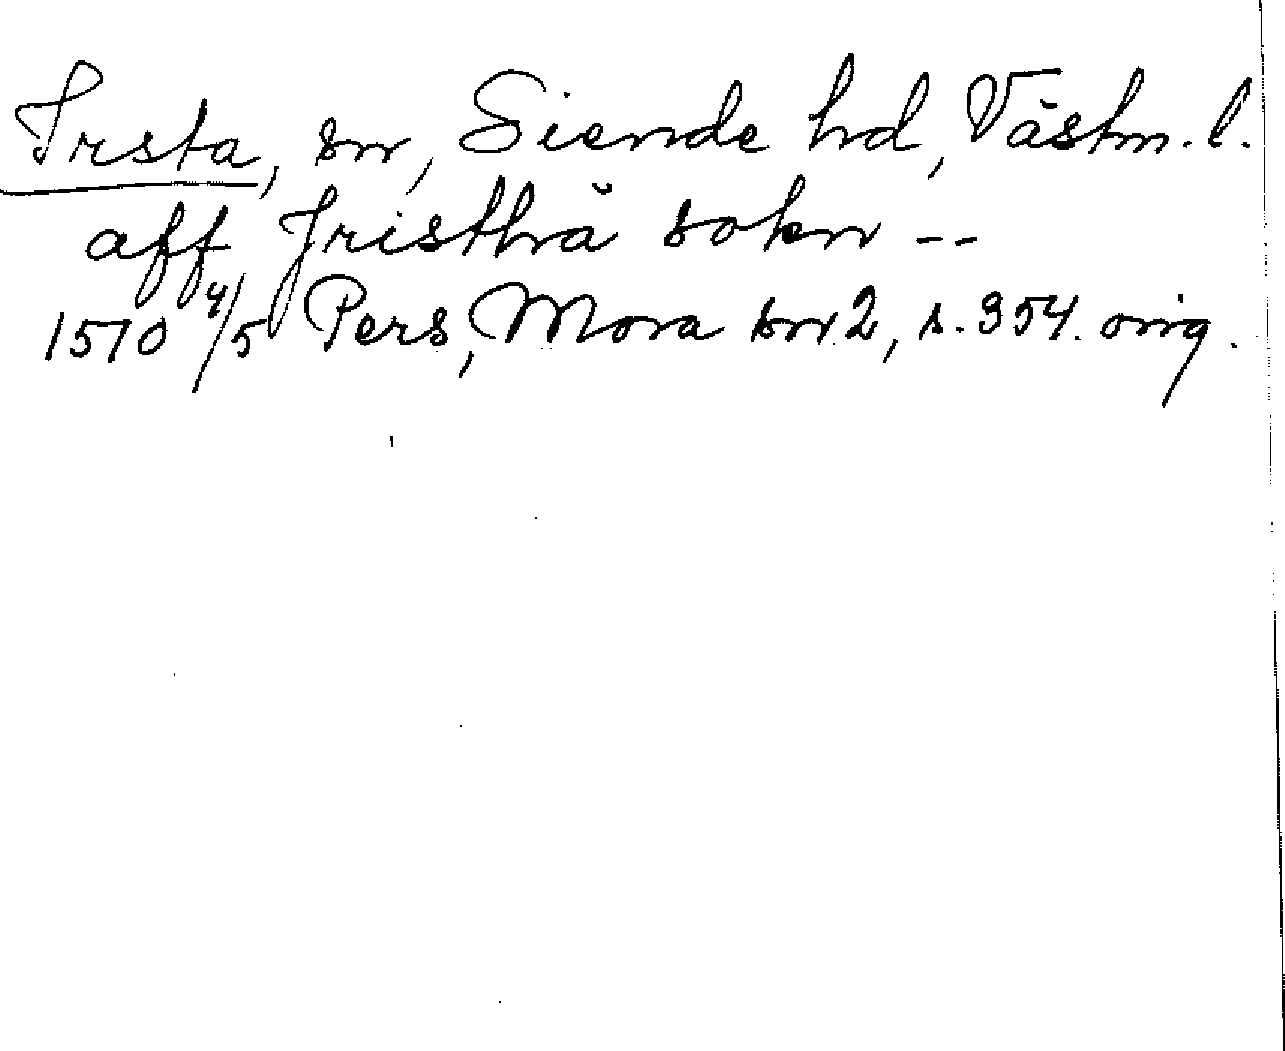 Irsta, sn, Siende hd, Västm. l.
aff Jristhă sokn --
1570 4/5 Pers, Mora sn 2, s. 354. orig.